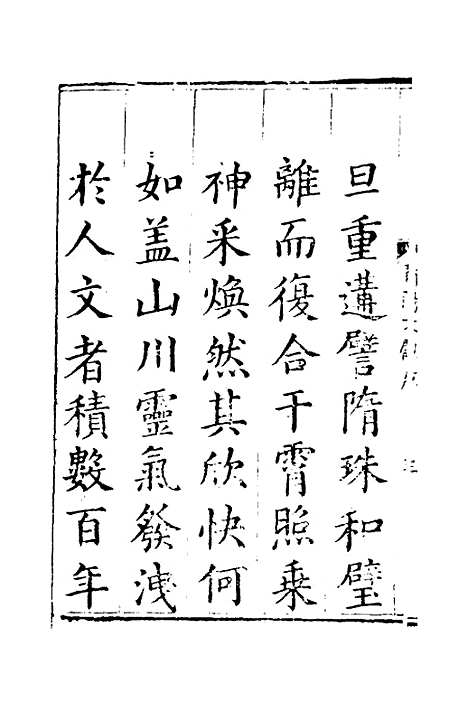 旦重遘譬隋珠和璧
離而復合干霄照乗
神采煥然其欣快何
如盖山川靈氣發洩
於人文者積數百年